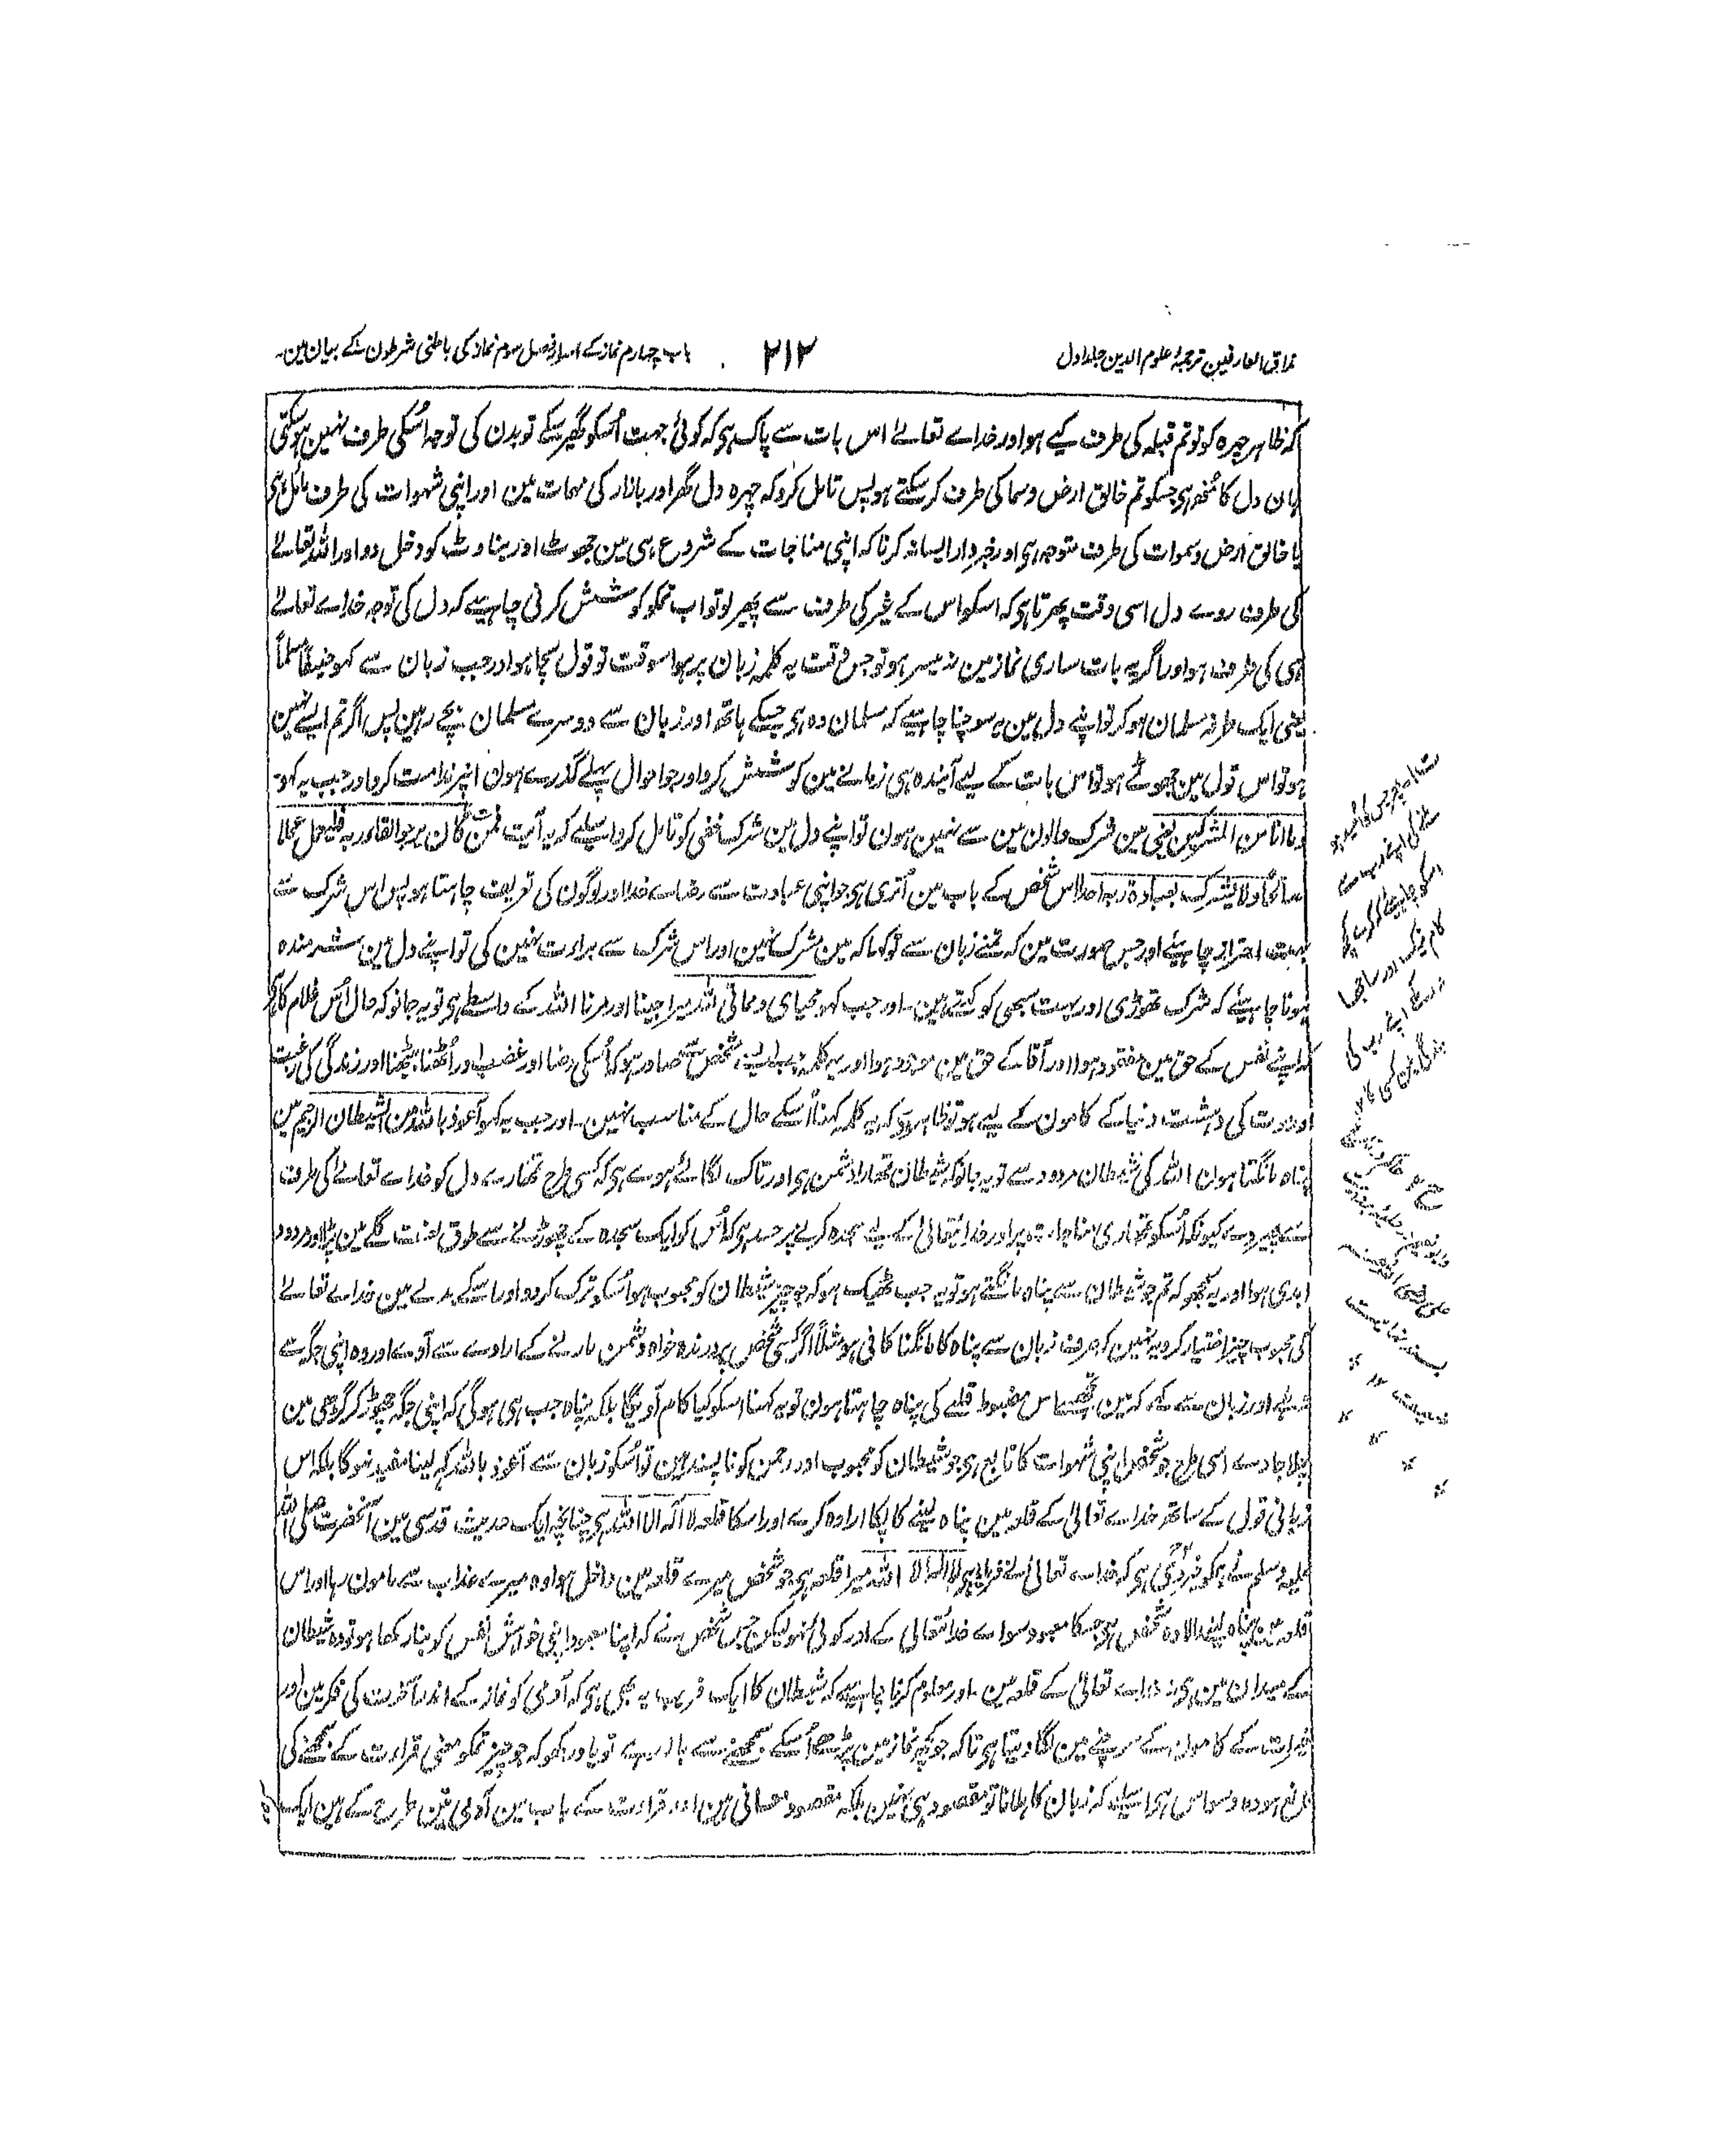 مذاق العارفین ترجمۂ علوم الدین جلد اول
۲۱۲
باب چہارم نماز کے اسرار فصل سوم نماز کی باطنی شرطون کے بیان مین۔
کہ ظاہر چہرہ کو تو تم قبلہ کی طرف کیے ہو اور خداے تعالےٰ اس بات سے پاک ہی کہ کوئی جہت اُسکو گھیر سکے تو بدن کی توجہ اُسکی طرف نہین ہو سکتی
ہان دل کا منھ ہی جسکو تم خالق ارض و سما کی طرف کر سکتے ہو پس تامل کرو کہ چہرہ دل گھر اور بازار کی مہمات مین اور اپنی شہوات کی طرف مائل ہی
یا خالق ارض و سموات کی طرف متوجہ ہی اور خبردار ایسا نہ کرنا کہ اپنی مناجات کے شروع ہی مین جھوٹ اور بناوٹ کو دخل دو اور اللہ تعالےٰ
کی طرف روے دل اسی وقت پھرتا ہی کہ اسکو اس کے غیر کی طرف سے پھیر لو تو اب تمکو کوشش کرنی چاہیے کہ دل کی توجہ خداے تعالےٰ
ہی کی طرف ہو اور اگر یہ بات ساری نماز مین نہ میسر ہو تو جس وقت یہ کلمہ زبان پر ہو اسوقت تو قول سچا ہو اور جب زبان سے کہو حنیفاً مسلماً
یعنی ایک طرفہ مسلمان ہو کر تو اپنے دل مین یہ سوچنا چاہیے کہ مسلمان وہ ہی جسکے ہاتھ اور زبان سے دوسرے مسلمان بچے رہین پس اگر تم ایسے نہین
ہو تو اس قول مین جھوٹے ہو تو اس بات کے لیے آیندہ ہی زمانے مین کوشش کرو اور جو احوال پہلے گذرے ہون انپر ندامت کرو اور جب یہ کہو۔
وما انا من المشرکین یعنی مین شرک والون مین سے نہین ہون تو اپنے دل مین شرک خفی کو تامل کرو اسیلیے کہ یہ آیت فمن کان یرجوا لقاء ربہ فلیعمل عملا
صالحا ولا یشرک بعبادۃ ربہ احدا اس شخص کے باب مین اُتری ہی جو اپنی عبادت سے رضاے خدا اور لوگون کی تعریف چاہتا ہو پس اس شرک سے
بہت احتراز چاہیے اور جس صورت مین کہ تمنے زبان سے تو کہا کہ مین مشرک نہین اور اس شرک سے براءت نہین کی تو اپنے دل مین شرمندہ
ہونا چاہیے کہ شرک تھوڑی اور بہت سبھی کو کہتے ہین۔ اور جب کہو محیای ومماتی للہ میرا جینا اور مرنا اللہ کے واسطے ہی تو یہ جانو کہ حال اُس غلام کا ہی
کہ اپنے نفس کے حق مین مفقود ہوا اور آقا کے حق مین موجود ہوا اور یہ کلمہ جب ایسے شخص سے صادر ہو کہ اُسکی رضا اور غضب اور اُٹھنا بیٹھنا اور زندگی کی رغبت
اور موت کی دہشت دنیا کے کامون کے لیے ہو تو ظاہر ہی کہ یہ کلمہ کہنا اُسکے حال کے مناسب نہین۔ اور جب یہ کہو اعوذ باللہ من الشیطان الرجیم مین
پناہ مانگتا ہون اللہ کی شیطان مردود سے تو یہ جانو کہ شیطان تمھارا دشمن ہی اور تاک لگائے ہوے ہی کہ کسی طرح تمھارے دل کو خداے تعالےٰ کی طرف
سے پھیر دے کیونکہ اُسکو تمھاری مناجات پر اور خداتعالیٰ کے لیے سجدہ کرنے پر حسد ہی کہ اُس کو ایک سجدہ کے چھوڑنے سے طوق لعنت گلے مین پڑا اور مردود
ابدی ہوا اور یہ سمجھو کہ تم جو شیطان سے پناہ مانگتے ہو تو یہ جب ٹھیک ہو کہ جو چیز شیطان کو محبوب ہو اُسکو ترک کر دو اور اسکے بدلے مین خداے تعالےٰ
کی محبوب چیز اختیار کرو یہ نہین کہ صرف زبان سے پناہ کا مانگنا کافی ہو مثلاً اگر کسی شخص پر درندہ خواہ دشمن مارنے کے ارادے سے آوے اور وہ اپنی جگہ سے
نہ ہلے اور زبان سے کہے کہ مین تجھسے اس مضبوط قلعے کی پناہ چاہتا ہون تو یہ کہنا اسکو کیا کام آویگا بلکہ پناہ جب ہی ہوگی کہ اپنی جگہ چھوڑ کر گڑھی مین
چلا جاوے اسی طرح جو شخص اپنی شہوات کا تابع ہی جو شیطان کو محبوب اور رحمن کو ناپسند ہین تو اُسکو زبان سے اعوذ باللہ کہہ لینا مفید نہوگا بلکہ اس
زبانی قول کے ساتھ خداے تعالیٰ کے قلعہ مین پناہ لینے کا پکا ارادہ کرے اور اسکا قلعہ لا الہ الا اللہ ہی چنانچہ ایک حدیث قدسی مین آنحضرت صلی اللہ
علیہ وسلم نے ہمکو خبر دی ہی کہ خداے تعالیٰ نے فرمایا ہی لا الہ الا اللہ میرا قلعہ ہی جو شخص میرے قلعہ مین داخل ہوا وہ میرے عذاب سے مامون رہا اور اس
قلعہ مین پناہ لینے والا وہ شخص ہی جسکا معبود سواے خداتعالی کے اور کوئی نہو لیکن جس شخص نے کہ اپنا معبود اپنی خواہش نفس کو بنا رکھا ہو تو وہ شیطان
کے میدان مین ہی نہ خداے تعالیٰ کے قلعہ مین۔ اور معلوم کرنا چاہیے کہ شیطان کا ایک فریب یہ بھی ہی کہ آدمی کو نماز کے اندر آخرت کی فکر مین اور
خیرات کے کامون کے سوچنے مین لگا دیتا ہی تاکہ جو کچھ نماز مین پڑھے اُسکے سمجھنے سے باز رہے تو یاد رکھو کہ جو چیز تمکو معنی قراءت کے سمجھنے کی
مانع ہو وہ وسواس ہی اسلیے کہ زبان کا ہلانا تو مقصود ہی نہین بلکہ مقصود معانی ہین اور قراءت کے باب مین آدمی تین طرح کے ہین ایک
سلنے کی اپنے رب سے
اسکو چاہیے کہ کرے کچھ
کام نیک اور ساجھا
نہ رکھے اپنے رب کی
بندگی مین کسی کا